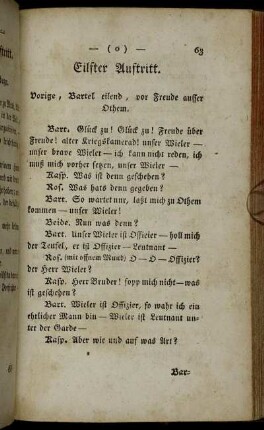 — ( o ) — 63
Eilfter Auftritt.
Vorige, Bartel eilend, vor Freude ausser
Othem.
Bart. Glück zu! Glück zu! Freude über
Freude! alter Kriegskamerad! unser Wieler —
unser brave Wieler — ich kann nicht reden, ich
muß mich vorher setzen, unser Wieler —
Kasp. Was ist denn geschehen?
Ros. Was hats denn gegeben?
Bart. So wartet nur, laßt mich zu Othem
kommen — unser Wieler!
Beide. Nun was denn?
Bart. Unser Wieler ist Offizier — holl mich
der Teufel, er ist Offizier — Leutnant —
Ros. (mit offnem Mund) O — O — Offizier?
der Herr Wieler?
Kasp. Herr Bruder! fopp mich nicht — was
ist geschehen?
Bart. Wieler ist Offizier, so wahr ich ein
ehrlicher Mann bin — Wieler ist Leutnant un-
ter der Garde —
Kasp. Aber wie und auf was Art?
Bar-